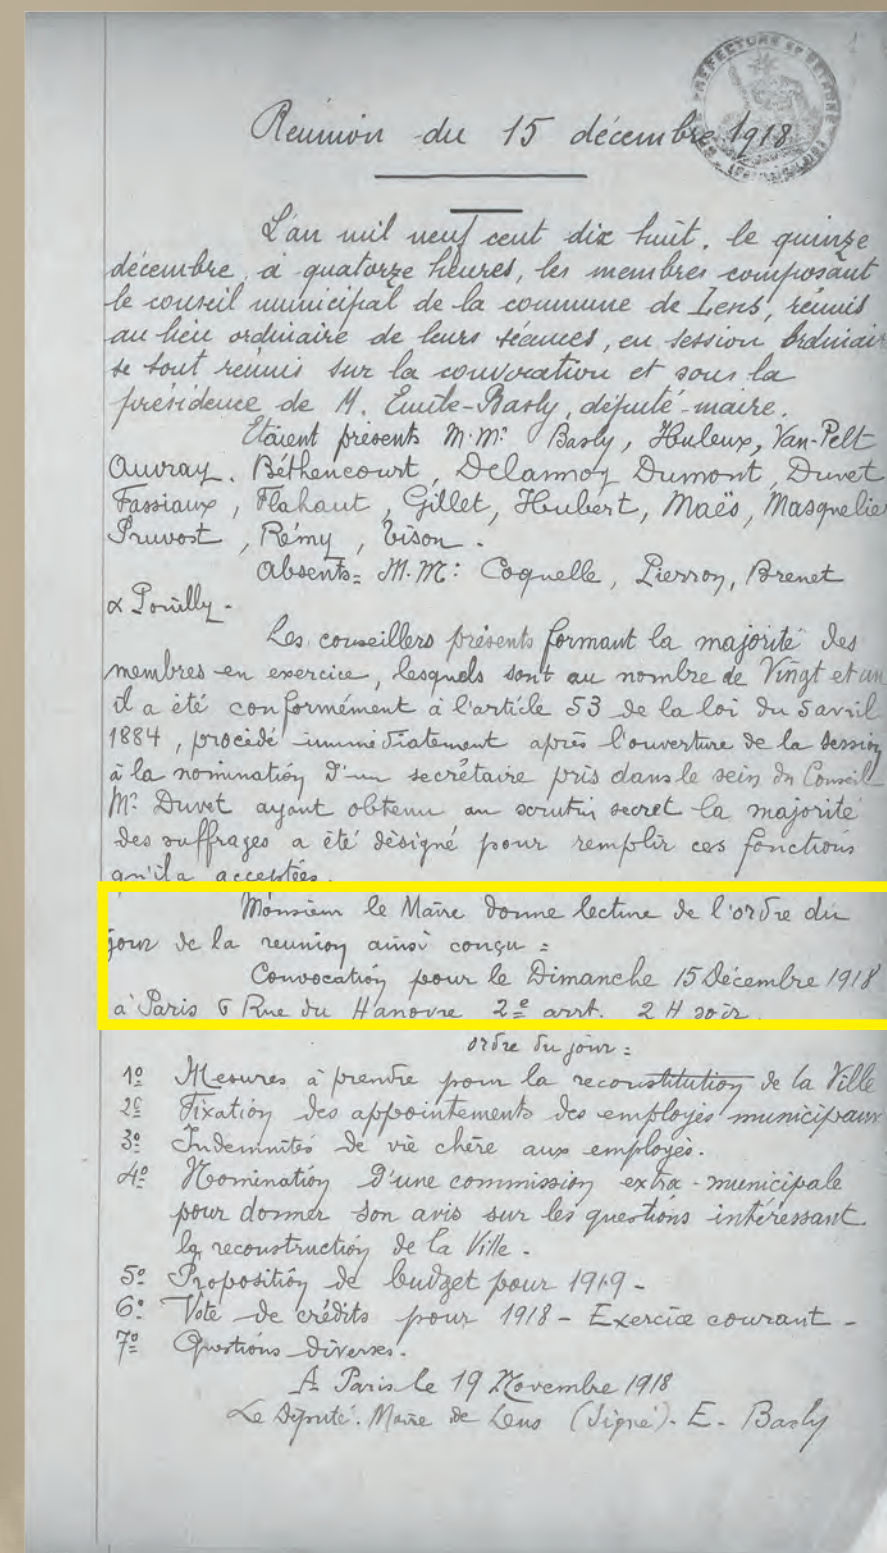 Réunion du 15 décembre 1918
SOUS-PRÉFECTURE DE BÉTHUNE
L'an mil neuf cent dix huit, le quinze
décembre, à quatorze heures, les membres composant
le conseil municipal de la commune de Lens, réunis
au lieu ordinaire de leurs séances, en session ordinair
se sont réunis sur la convocation et sous la
présidence de M. Emile-Basly, député-maire.
Etaient présents M.M. Basly, Huleux, Van-Pelt
Auvray, Béthencourt, Delannoy Dumont, Duvet
Fassiaux, Flahaut, Gillet, Houbert, Maës, Masquelie
Pruvost, Rémy, Tison.
Absents = M.M: Coquelle, Pierron, Brenet
& Pouilly -
Les conseillers présents formant la majorité des
membres en exercice, lesquels sont au nombre de Vingt et un
il a été conformément à l'article 53 de la loi du 5 avril
1884, procédé immédiatement après l'ouverture de la session
à la nomination d'un secrétaire pris dans le sein du Conseil
Mr. Duvet ayant obtenu au scrutin secret la majorité
des suffrages a été désigné pour remplir ces fonctions
qu'il a acceptées.
Monsieur le Maire donne lecture de l'ordre du
jour de la reunion ainsi conçu =
Convocation pour le Dimanche 15 Décembre 1918
à Paris 6 Rue du Hanovre 2e arrt. 2 H soir
ordre du jour =
1º Mesures à prendre pour la reconstitution de la Ville
2º Fixation des appointements des employés municipaux
3º Indemnités de vie chère aux employés.
4º Nomination d'une commission extra-municipale
pour donner son avis sur les questions intéressant
la reconstruction de la Ville.
5º Proposition de budget pour 1919 -
6º Vote de crédits pour 1918 - Exercice courant -
7º Questions diverses.
A Paris le 19 Novembre 1918
Le Député. Maire de Lens (signé). E. Basly